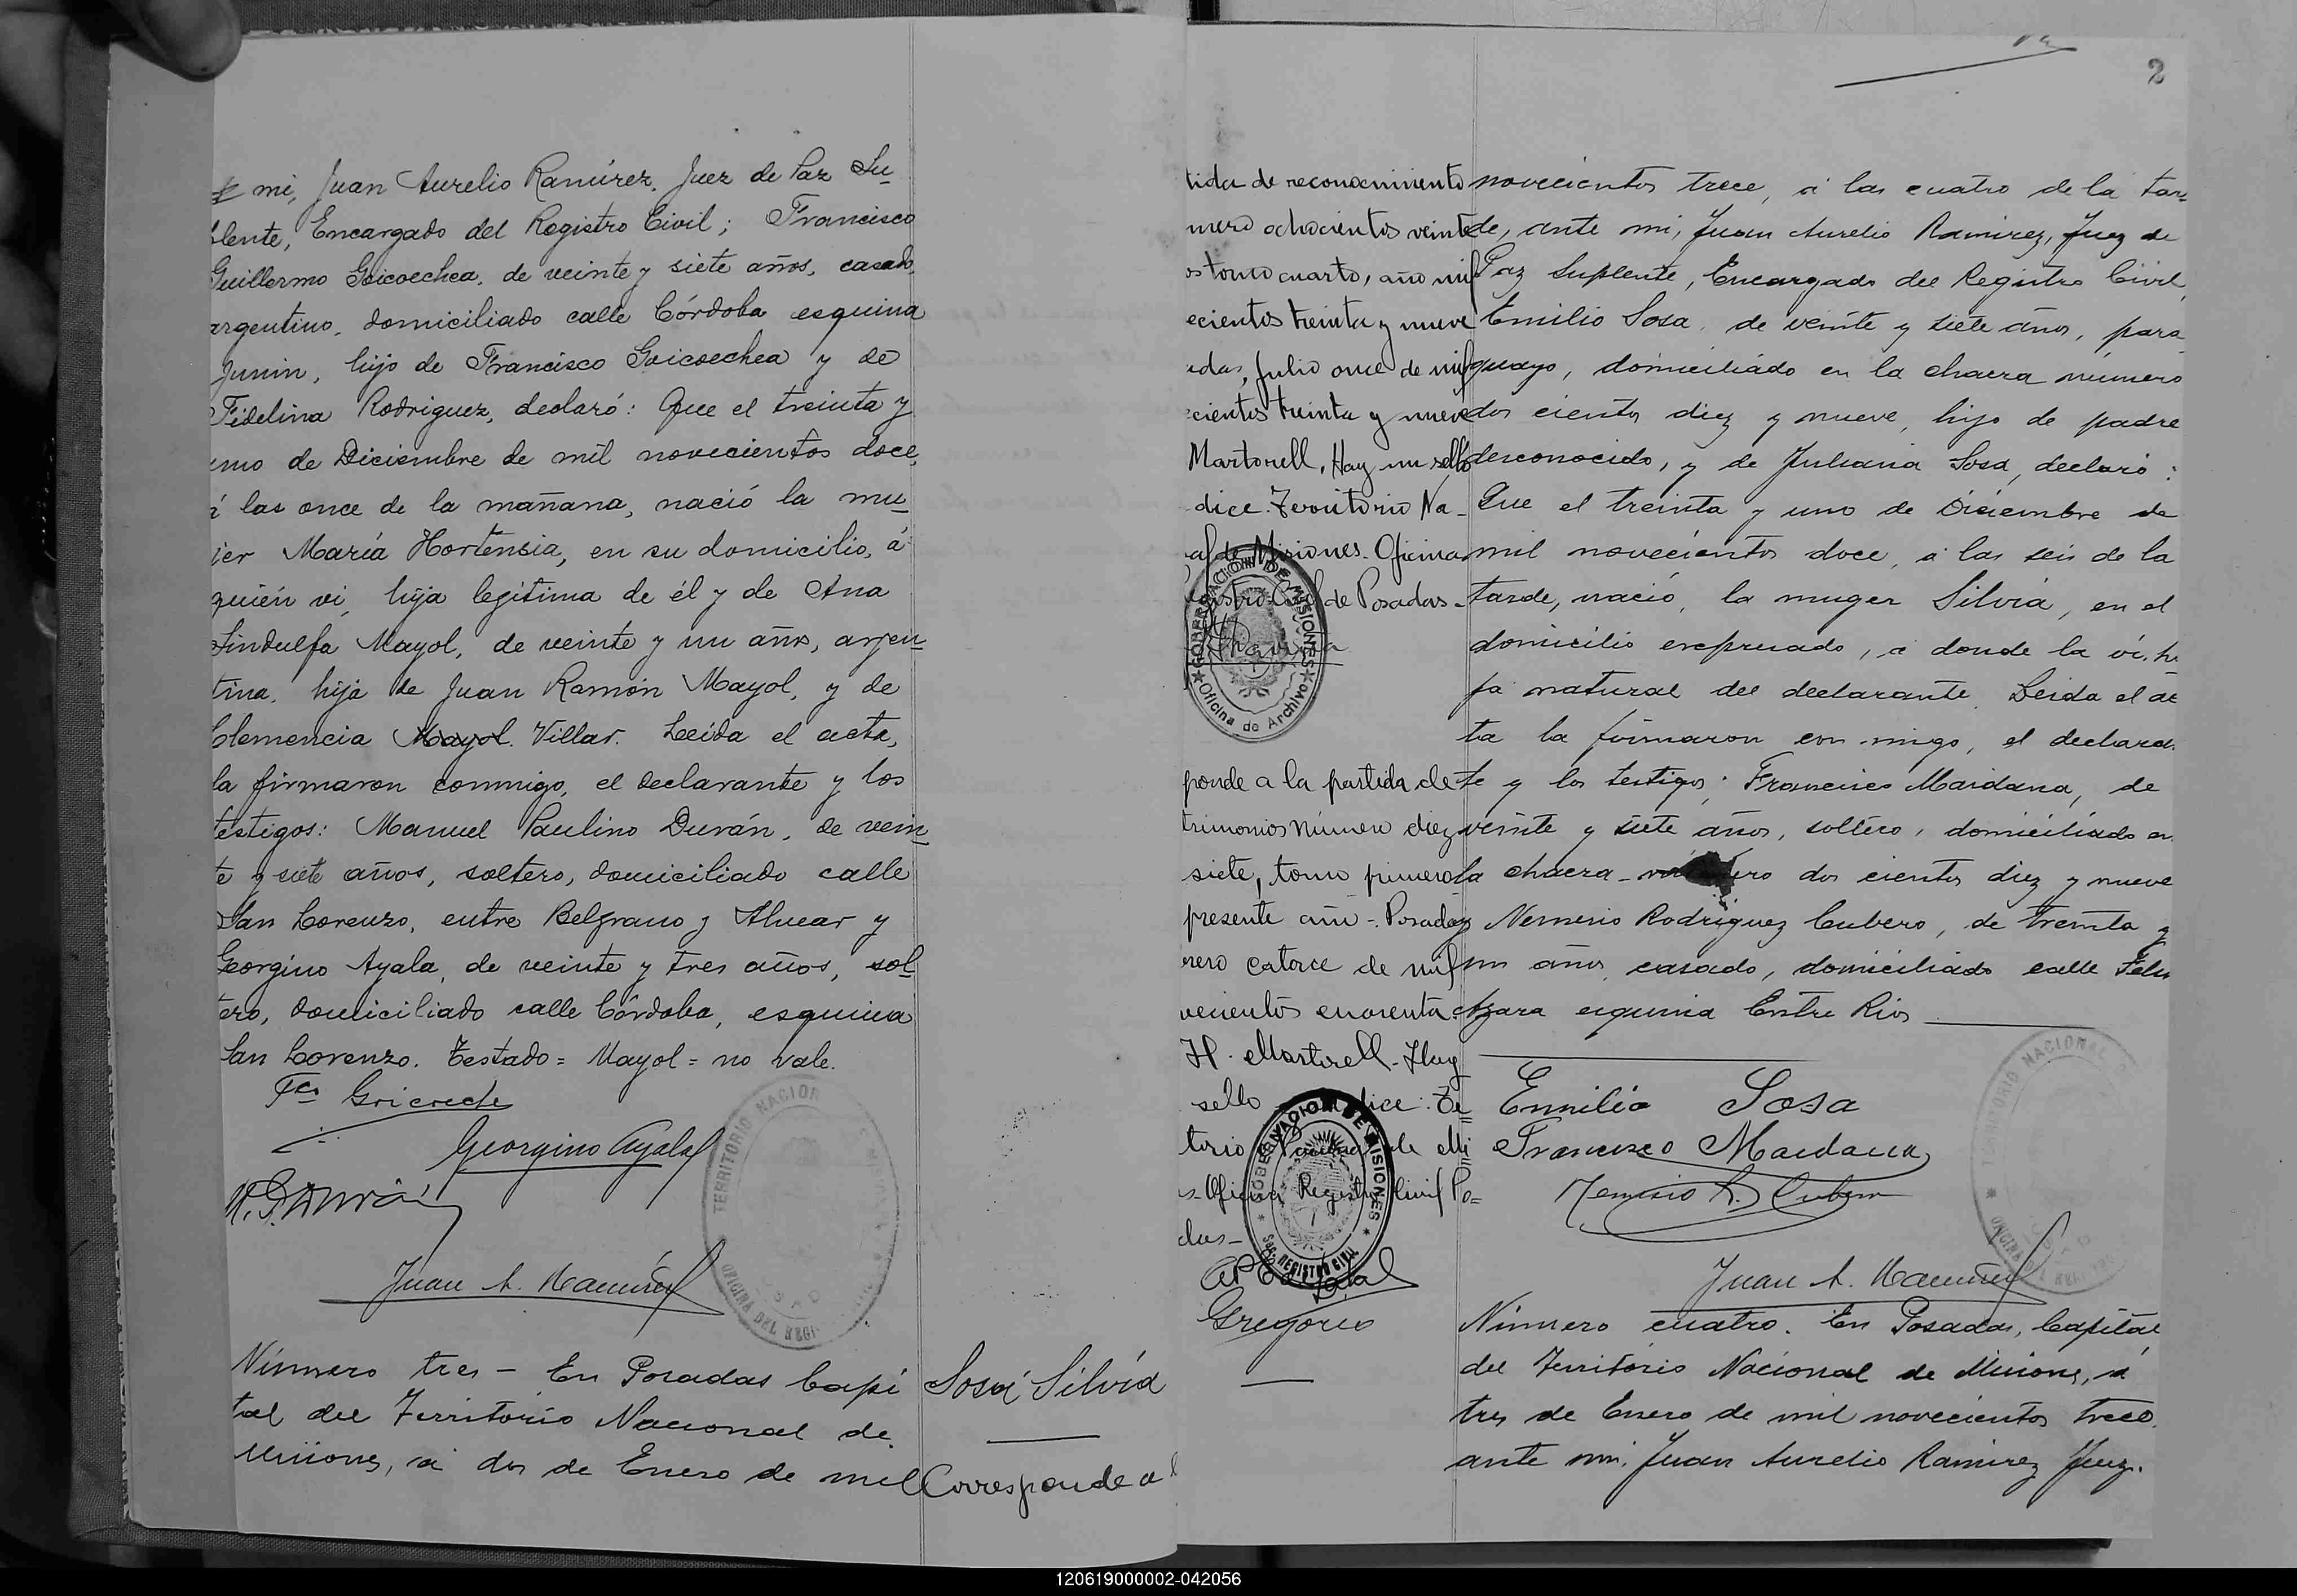 mi, Juan Aurelio Ramírez, Juez de Paz Su-
plente, Encargado del Registro Civil; Francisco
Guillermo Goicoechea, de veinte y siete años, casado,
argentino, domiciliado calle Córdoba esquina
Junin, hijo de Francisco Goicoechea y de
Fidelina Rodriguez, declaró: Que el treinta y
uno de Diciembre de mil novecientos doce,
á las once de la mañana, nació la mu-
jer María Hortensia, en su domicilio, á
quién vi, hija legitima de él y de Ana
Lindulfa Mayol, de veinte y un años, arjen-
tina, hija de Juan Ramón Mayol, y de
Clemencia Mayol. Villar. Leida el acta,
la firmaron conmigo, el declarante y los
testigos: Manuel Paulino Durán, de vein-
te y siete años, soltero, domiciliado calle
San Lorenzo, entre Belgrano y Alvear y
Georgino Ayala, de veinte y tres años, sol-
tero, domiciliado calle Córdoba, esquina
San Lorenzo. Testado = Mayol = no vale.
Fco Goicoechea
Georgino Ayala
M. P. Durán
Juan A. Ramírez
TERRITORIO NACIONAL
OFICINA DEL REGI
Número tres - En Posadas Capi
tal del Territorio Nacional de
Misiones, á dos de Enero de mil
Sosa Silvia
Corresponde a l
2
tida de reconocimiento
mero ochocientos veinte
os tomo cuarto, año mil
ecientos treinta y nueve
adas, Julio once de mil
ecientos treinta y nueve
Martorell, Hay un sello
dice. Territorio Na-
al de Misiones. Oficina
istro Civil de Posadas-
GOBERNACION DE MISIONES
Oficina de Archivo
ponde a la partida de
trimonios número diez
siete, tomo primero
presente año - Posadas
nero catorce de mil
vecientos cuarenta
H. Martorell - Hay
sello dice: Te
torio Nacional de Mi
s- Oficina Registro Civil Po=
das-
GOBERNACION DE MISIONES
Sec. REGISTRO CIVIL
Gregorio
novecientos trece, á las cuatro de la tar-
de, ante mi, Juan Aurelio Ramirez, Juez de
Paz Suplente, Encargado del Registro Civil,
Emilio Sosa, de veinte y siete años, para
guayo, domiciliado en la chacra número
dos cientos diez y nueve, hijo de padre
desconocido, y de Juliana Sosa, declaró:
Que el treinta y uno de Diciembre de
mil novecientos doce, á las seis de la
tarde, nació, la muger Silvia, en el
domicilio expresado, á donde la ví, hi
ja natural del declarante. Leida el ac
ta la firmaron con migo, el declaran
te y los testigos: Francisco Maidana, de
veinte y siete años, soltero, domiciliado en
la chacra número dos cientos diez y nueve
y Nemesio Rodriguez Cubero, de treinta y
un años, casado, domiciliado calle Felix
Azara esquina Entre Rios
Emilio Sosa
Francisco Maidana
Nemesio R. Cubero
Juan A. Ramírez
TERRITORIO NACIONAL
Número cuatro. En Posadas, Capital
del Territorio Nacional de Misiones, á
tres de Enero de mil novecientos trece,
ante mi, Juan Aurelio Ramirez Juez.
120619000002-042056